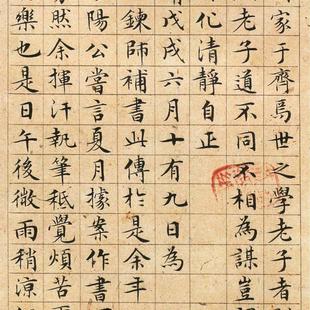 家于齊焉世之學老子者
老子道不同不相為謀豈
化清靜自正
戊戌六月十有九日為
鍊師補書此傳於是余年
陽公嘗言夏月據案作書
然余揮汗執筆秪覺煩苦
樂也是日午後微雨稍涼